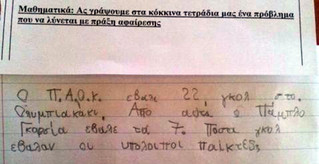 Μαθηματικά: Ας γράψουμε στα κόκκινα τετράδια μας ένα πρόβλημα
που να λύνεται με πράξη αφαίρεσης
Ο Π.Α.Ο.Κ. εβαλε 22 γκολ στο
Ολυμπιακάκι. Από αφτα ο Πάμπλο
Γκαρσία εβαλε τα 7. Ποσα γκολ
εβαλαν οι υπολιποι παίκτες